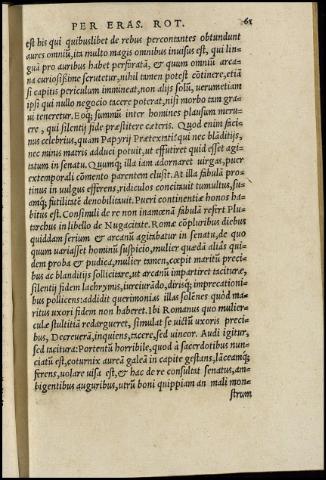 PER ERAS. ROT. 61
est his qui quibuslibet de rebus percontantes obtundunt
aures omniũ, ita multo magis omnibus inuisus est, qui lin-
guã pro auribus habet perforatã, & quum omniũ arca-
na curiosißime scrutetur, nihil tamen potest cõtinere, etiã
si capitis periculum immineat, non alijs solũ, uerumetiam
ipsi qui nullo negocio tacere poterat, nisi morbo tam gra-
ui teneretur. Eoq; summũ inter homines plausum merue-
re, qui silentij fide præstitere cæteris. Quod enim faci-
nus celebrius, quam Papyrij Prætextati? qui nec blãditijs,
nec minis matris adduci potuit, ut effutiret quid esset agi-
tatum in senatu. Quumq; illa iam adornaret uirgas, puer
extemporali cõmento parentem elusit. At illa fabulã pro-
tinus in uulgus efferens, ridiculos concitauit tumultus, su-
amq; futilitatẽ denobilitauit. Pueri continentiæ honos ha-
bitus est. Consimili de re non inamœnã fabulã refert Plu-
tarchus in libello de Nugacitate. Romæ cõpluribus diebus
quiddam serium & arcanũ agitabatur in senatu, de quo
quum uariasset hominũ suspicio, mulier quædã aliâs qui-
dem proba & pudica, mulier tamen, cœpit maritũ preci-
bus ac blanditijs sollicitare, ut arcanũ impartiret tacituræ,
silentij fidem lachrymis, iureiurãdo, dirisq; imprecationi-
bus pollicens: addidit querimonias illas solẽnes quòd ma-
ritus uxori fidem non haberet. Ibi Romanus quo mulier-
culæ stultitiã redargueret, simulat se uictũ uxoris preci-
bus, Decreuerã, inquiens, tacere, sed uincor. Audi igitur,
sed tacitura: Portentũ horribile, quod à sacerdotibus nun-
ciatũ est, coturnix aureã galeã in capite gestans, lãceamq;
ferens, uolare uisa est, & hac de re consultat senatus, am-
bigentibus auguribus, utrũ boni quippiam an mali mon-
strum